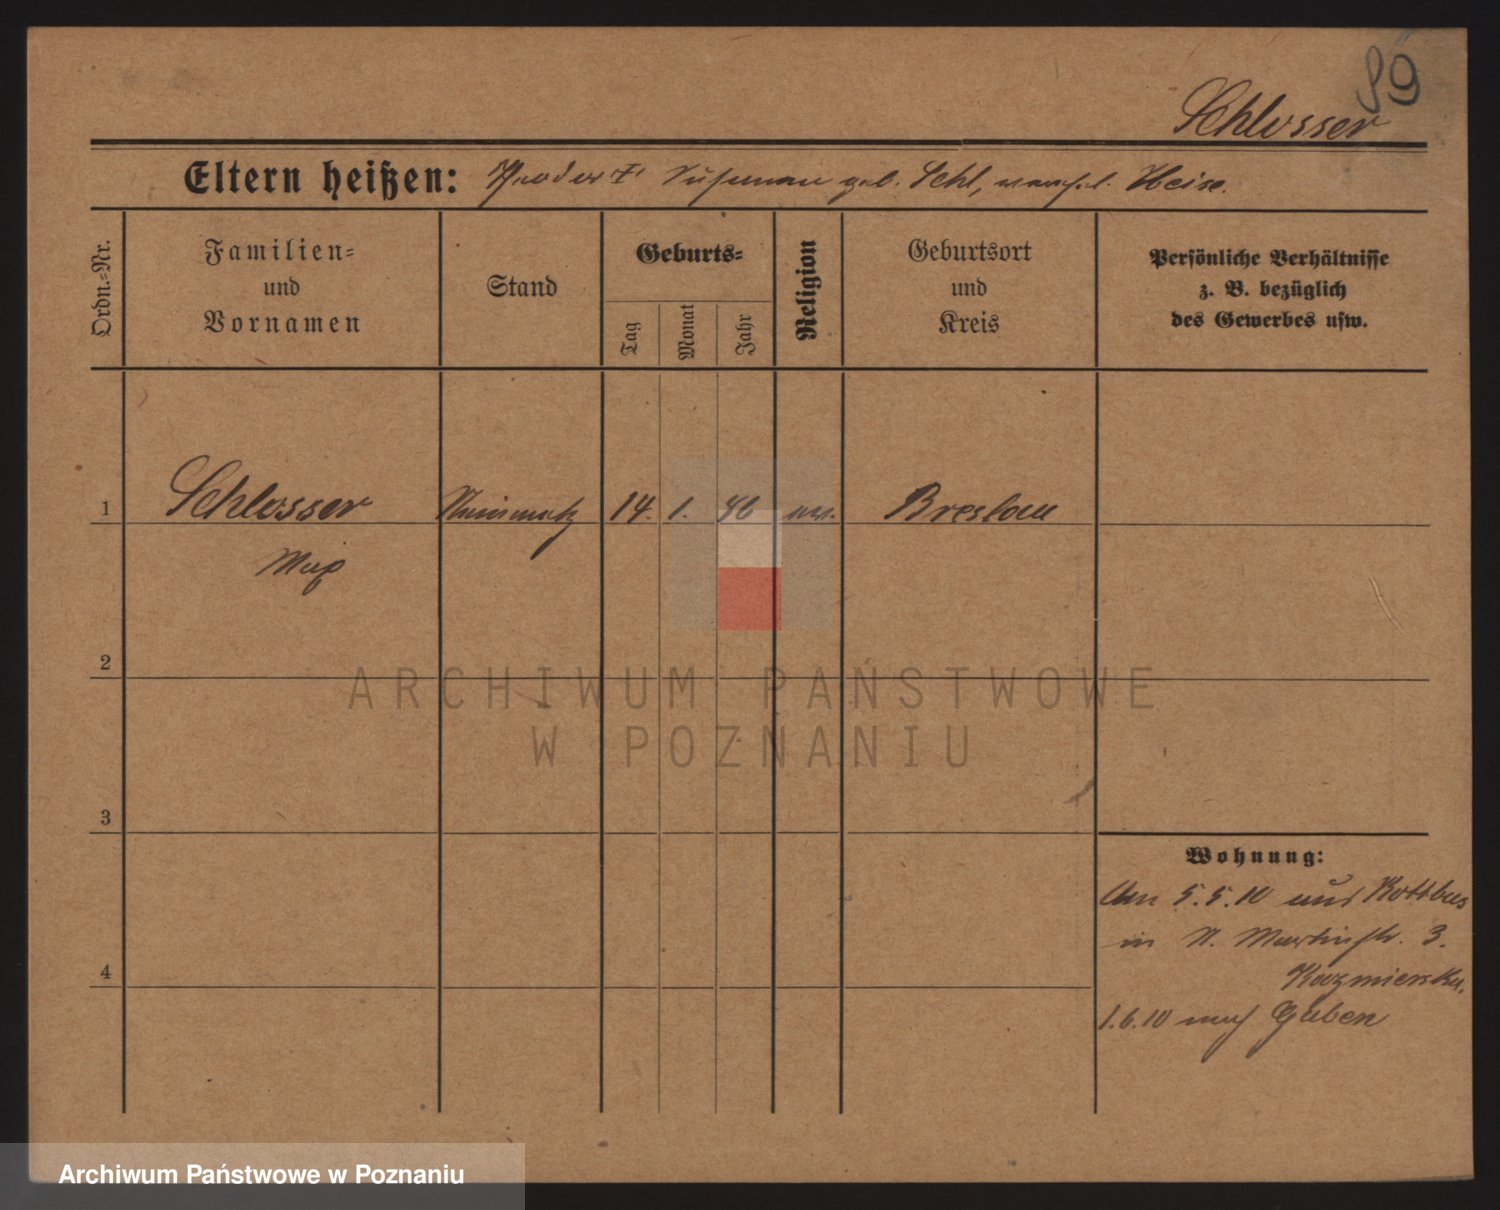 89
Schlosser
Eltern heißen: Theodor geb. Schl, Heise.
Ordn.-Nr.
Familien-
und
Vornamen
Stand
Geburts-
Tag
Monat
Jahr
Religion
Geburtsort
und
Kreis
Persönliche Verhältnisse
z. B. bezüglich
des Gewerbes usw.
1 Schlosser 14. 1. 46 ev. Breslau
Max
2
ARCHIWUM PAŃSTWOWE
W POZNANIU
3
Wohnung:
Am 5.5.10 aus Kottbus
in St. Martinstr. 3.
4
Kazmierska,
1.6.10 nach Guben
Archiwum Państwowe w Poznaniu